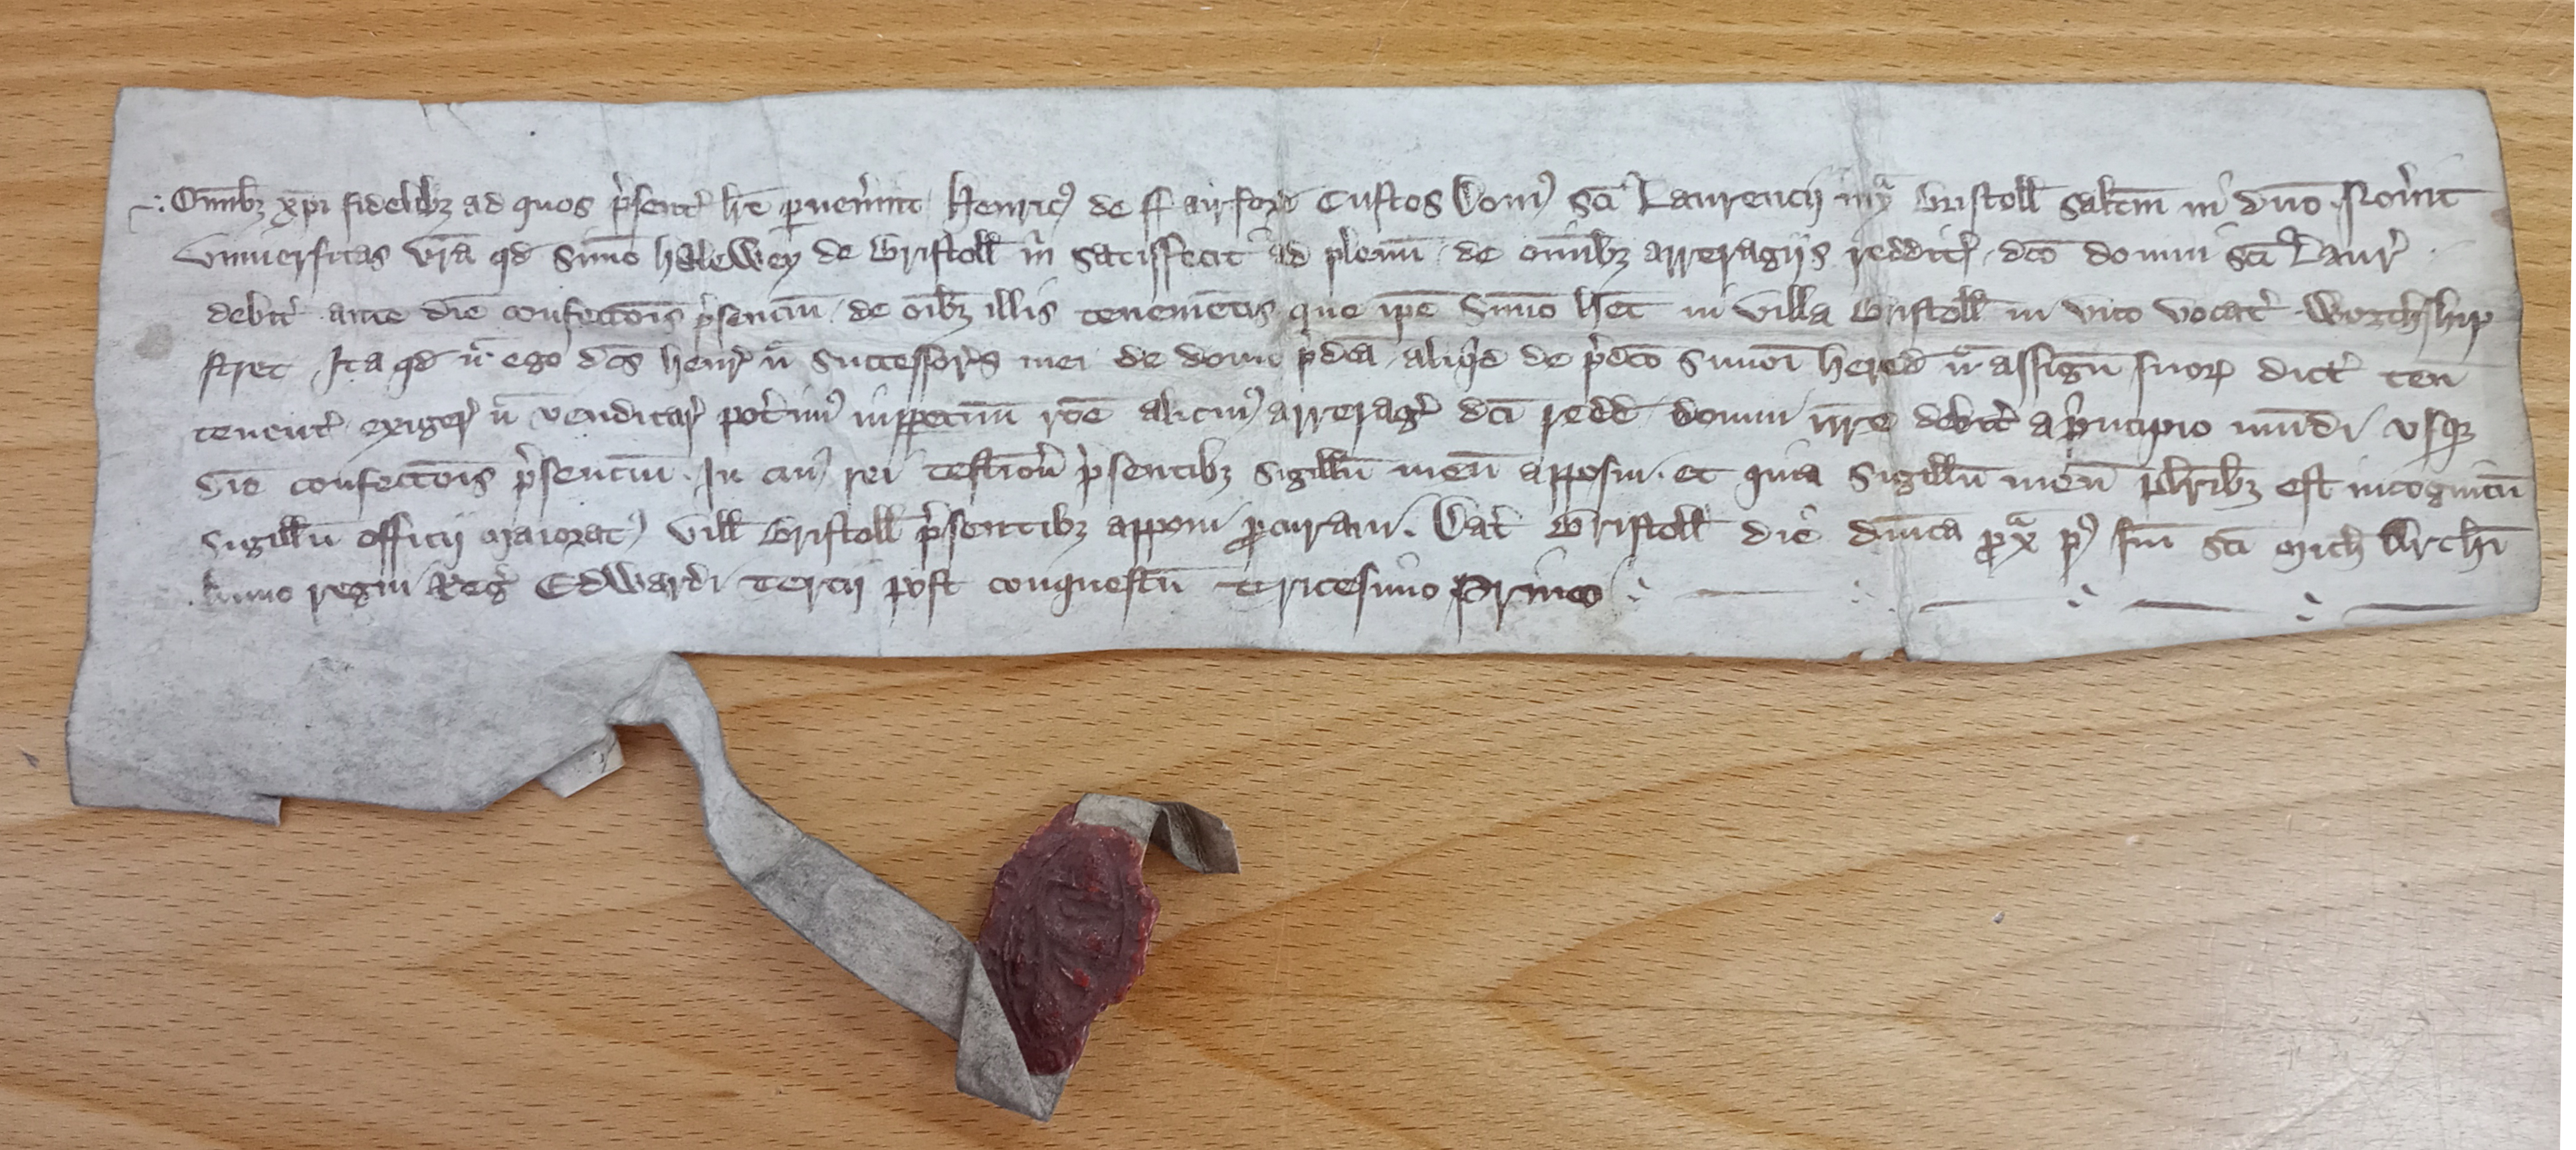 Om̄ibꝫ xp̄i fidelibꝫ ad quos p̾sent̾ lr̄e ꝑuen̾int Henricꝰ de ffairford Custos Domꝰ Sc̄i Laurencij iuxᵃ Bristoll Salt̄m in dn̄o Nou̾it
vniuersitas vr̄a qd̄ Simō haleWey de Bristoll m̾ satisfecit ad plenū de om̄ibꝫ arreragijs reddit̾ dc̄o domui sc̄i Laur̾
debit̾ ante diē confecc̄ōis p̾senciū de oı̄bꝫ illis tenemētis que ip̄e Simō h̄et in villa Bristoll in vico vocat̾ Worthship
stret Ita qd̄ n̄ ego dc̄s Henr̾ n̄ Successor̾s mei de domo p̾dc̄a aliqͥd de p̾dc̄o Simōı̄ hered̄ n̄ assign̄ suoꝝ dict̾ ten̄
tenent̾ exiger̾ n̄ venditar̾ pot̾imꝰ inꝑpetuū rōe alicuiꝰ arrerag̾ dc̄i redd̄ domui nr̄e debit̾ a p̾ncipio mūdi vsqꝫ
diē confecc̄ōis p̾senciū. In cuiꝰ rei testīōn̾ p̾sentibꝫ Sigillū meū apposui. et quia Sigillū meū pl̄ribꝫ est incognitū
Sigillū officij maioratꝰ vill̄ Bristoll p̾sentibꝫ apponi ꝓcuraui. Dat̾ Bristoll diē dn̄ica ꝓxᵃ pꝰ fm̄ sc̄i Mich̄ Arch̄i
Anno regni Reg̾ EdWardi Tercij post conquestū Tricesimo Primo